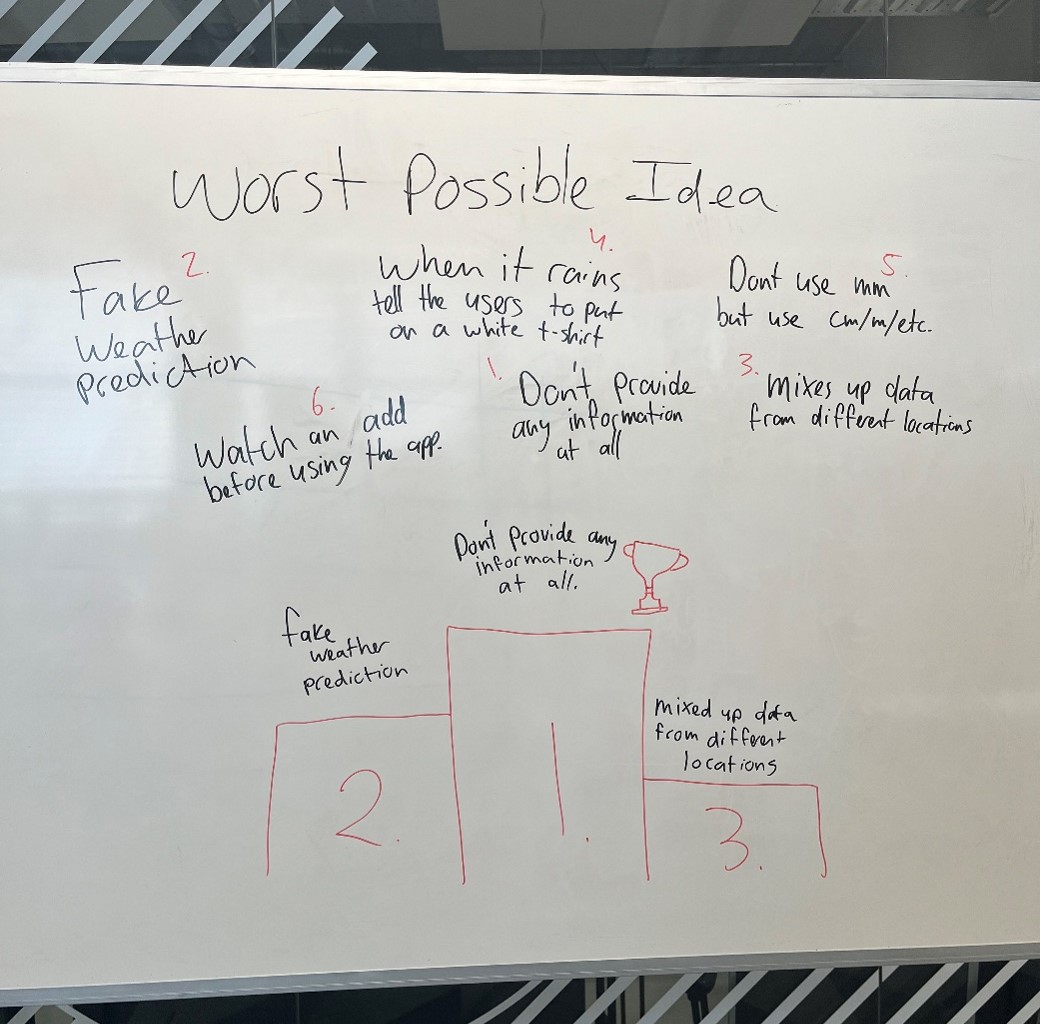 Worst Possible Idea
2.
Fake
Weather
prediction
4.
When it rains
tell the users to put
on a white t-shirt
5.
Dont use mm
but use cm/m/etc.
6.
Watch an add
before using the app.
1.
Don't provide
any information
at all
3.
Mixes up data
from different locations
Don't provide any
information
at all.
fake
weather
prediction
mixed up data
from different
locations
2.
1.
3.